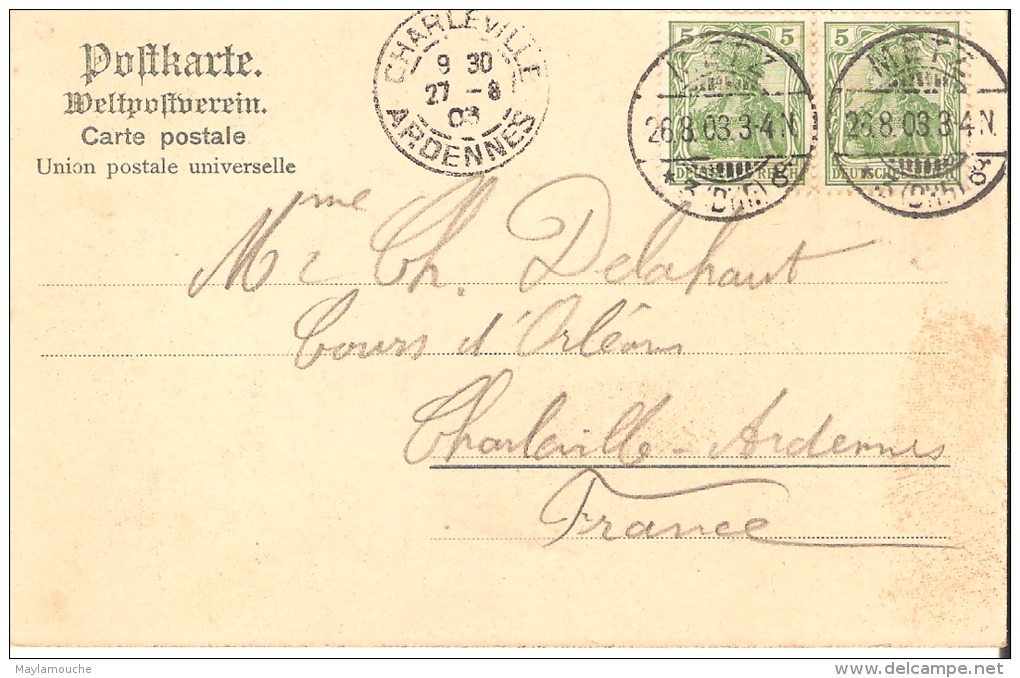 Postkarte.
Weltpostverein.
Carte postale
Union postale universelle
CHARLEVILLE
9 30
27 - 8
03
ARDENNES
5 5
5
METZ
METZ
26.8.03.3-4N.
26.8.03.3-4N.
DEUTSCHES REICH
DEUTSCHES REICH
Mme Ch. Delahaut
Cours d'Orléans
Charleville - Ardennes
France
Maylamouche
www.delcampe.net